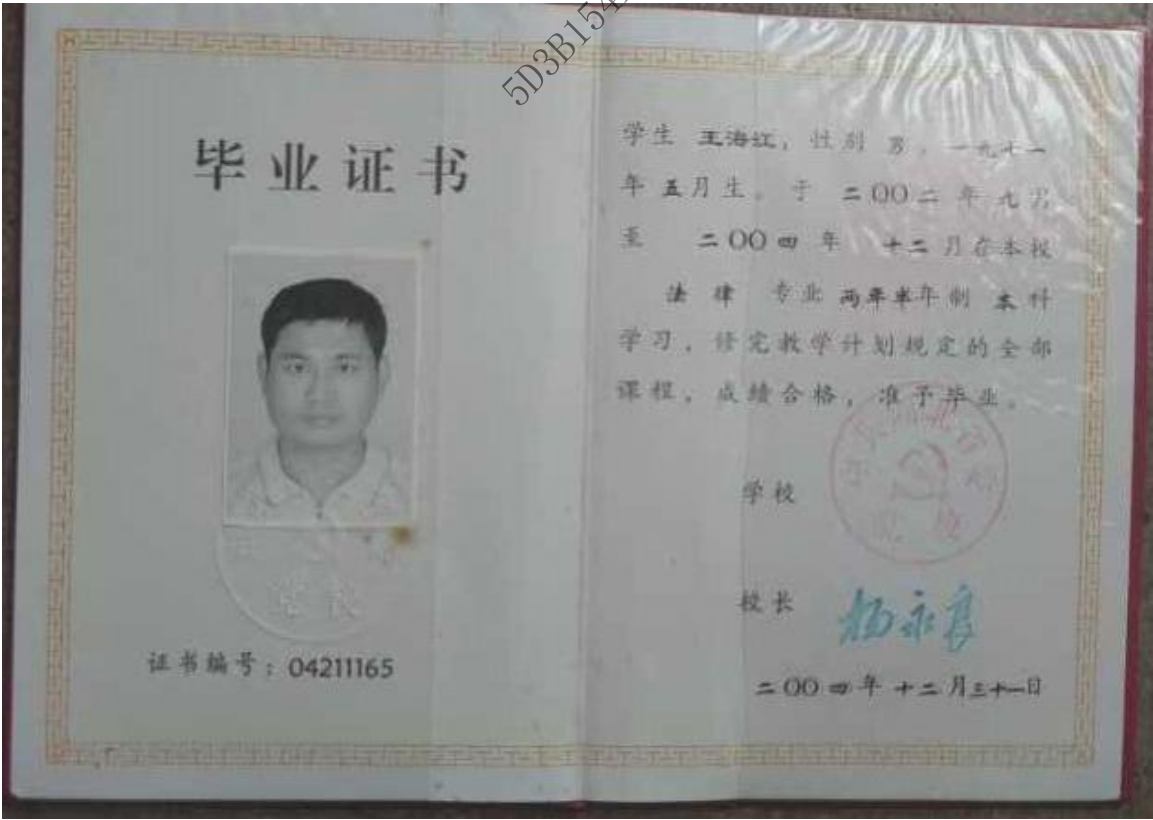 5D3B154
毕业证书
证书编号：04211165
学生 王海江，性别 男，一九七一
年 五月生。于 二〇〇二 年 九月
至 二〇〇四 年 十二 月在本校
法 律 专业 两年半年制 本科
学习，修完教学计划规定的全部
课程，成绩合格，准予毕业。
学校
党校
校长
杨永良
二〇〇四年 十二月三十一日